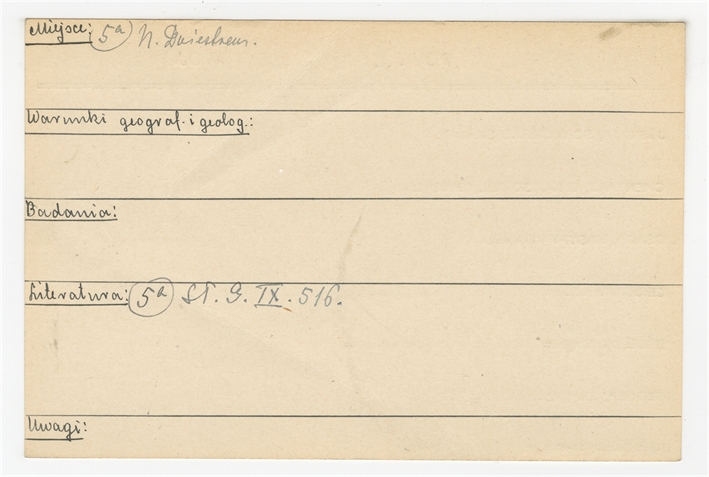 Miejsce: 5a N. Dniestrem.
Warunki geograf. i geolog.:
Badania:
Literatura: 5a ST. G. IX. 516.
Uwagi: